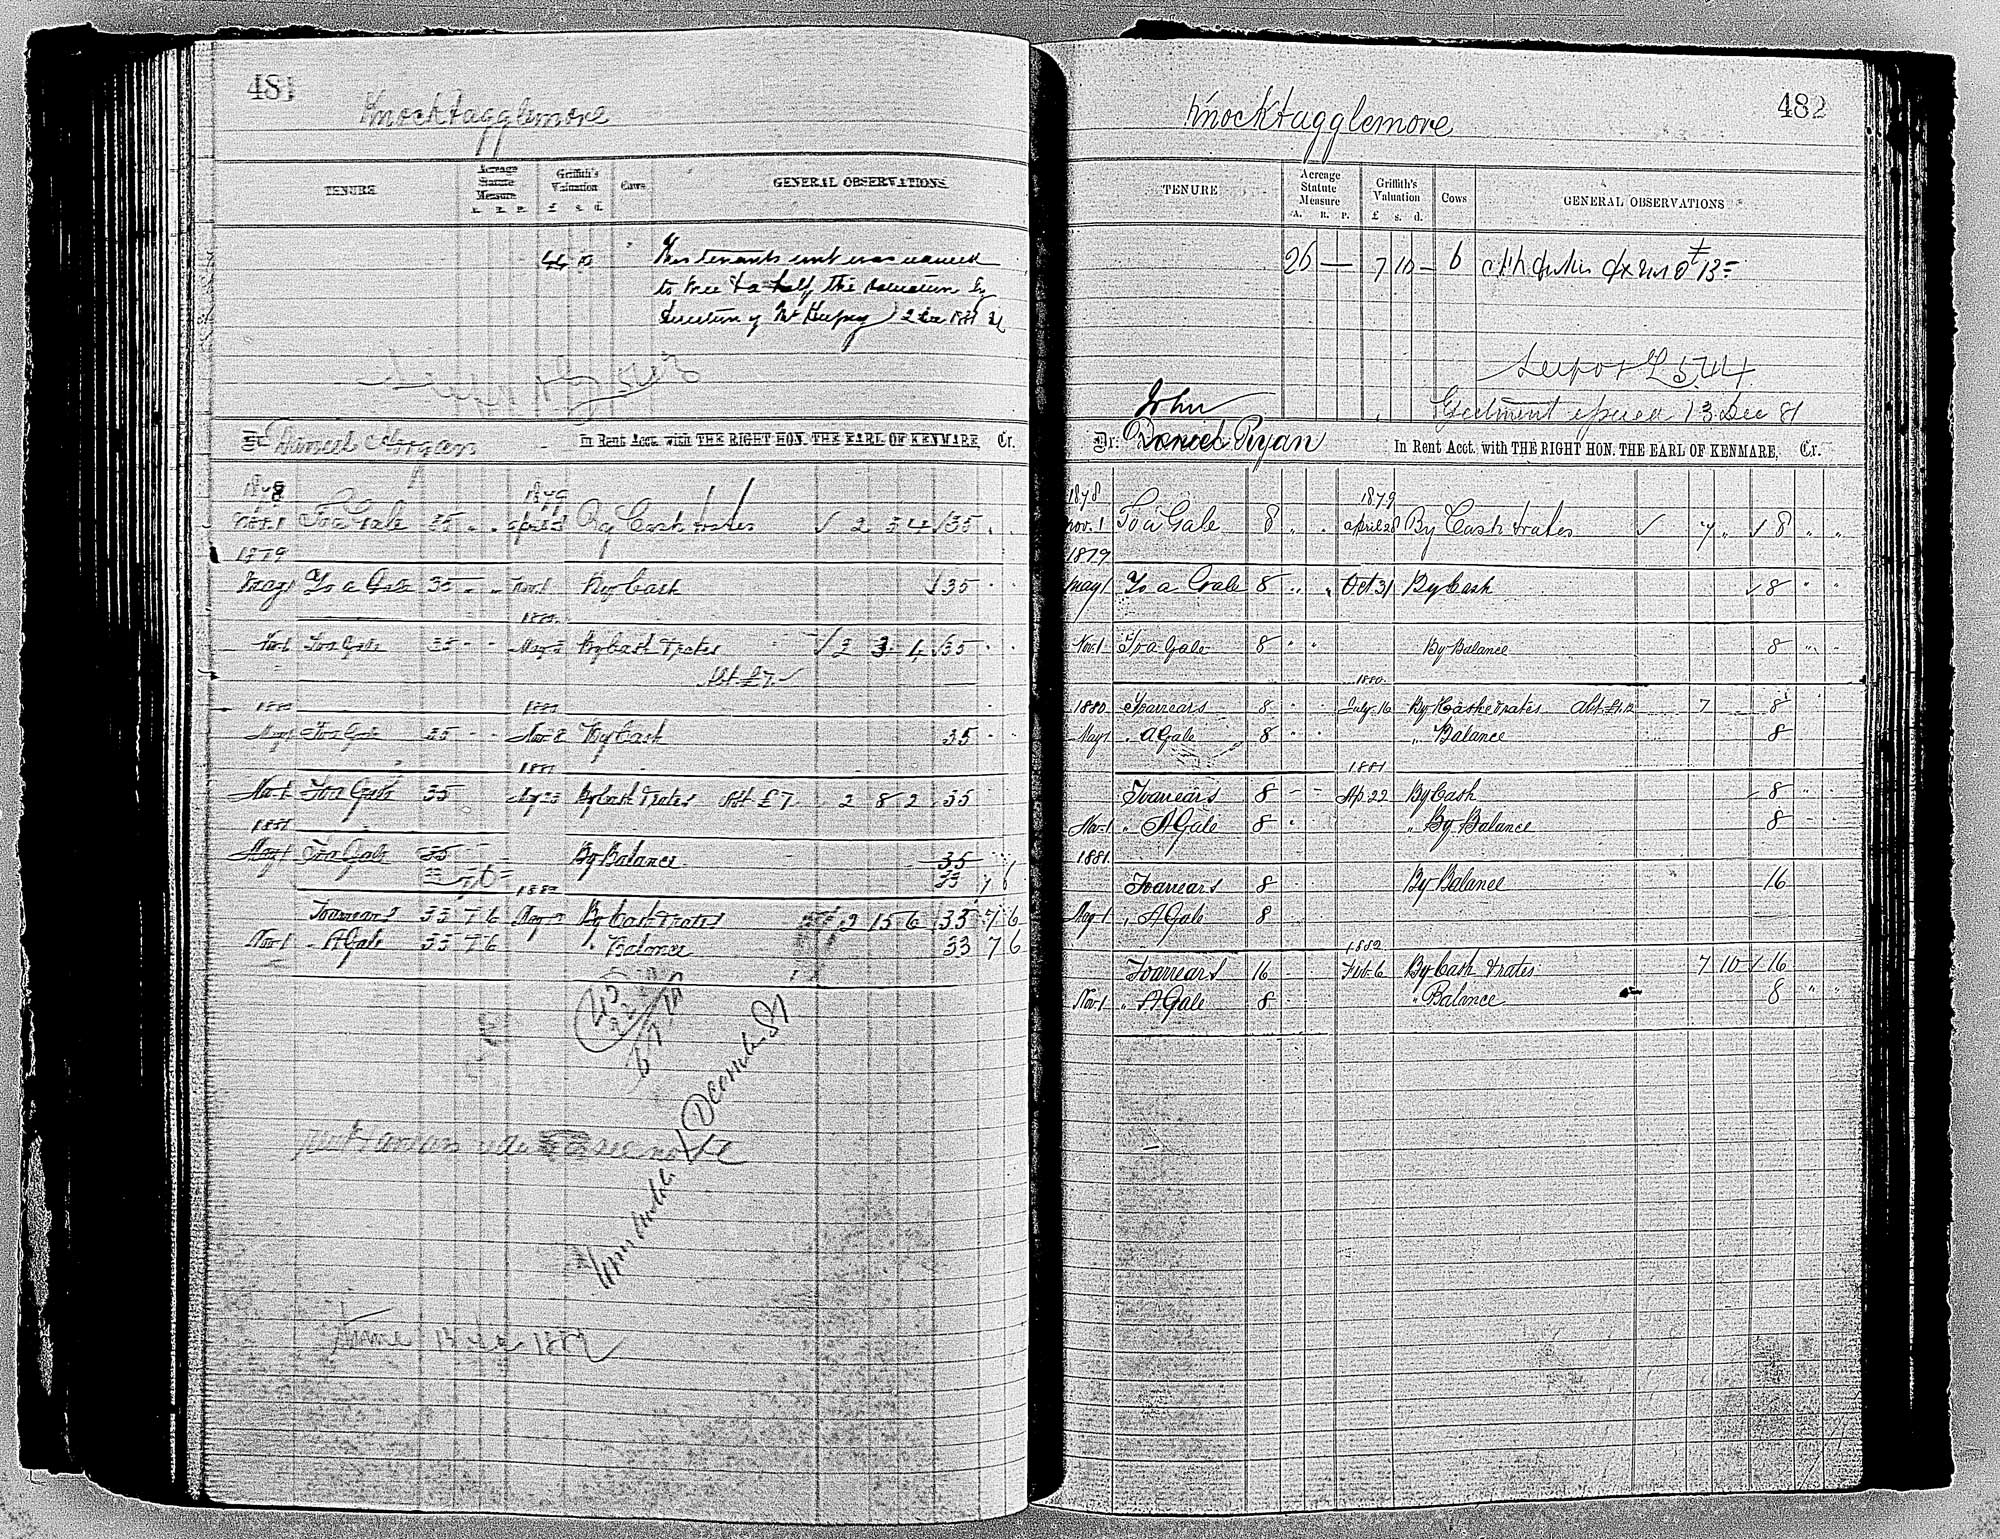 481
Knocktagglemore
TENURE
Acreage Statute Measure
A. R. P.
Griffith's Valuation
£ s. d.
Cows
GENERAL OBSERVATIONS
44 10
This tenants rent was
to tree & a half the valuation by
direction of Mr Hussey 2
Dr. Daniel In Rent Acct. with THE RIGHT HON. THE EARL OF KENMARE, Cr.
1878 1879
Nov. 1 To a Gale 35 " " April 28 By Cash & rates √ 2 3 4 √ 35 " "
1879
May 1 To a Gale 35 " " Nov. 1 By Cash √ 35 " "
1880
Nov 1 To a Gale 35 " " May By Cash & rates √ 2 3 4 √ 35 " "
Abt £7
1880 1880
May 1 To a Gale 35 " " Nov 8 By Cash 35 " "
1881
Nov 1 To a Gale 35 By Cash & rates Abt £7 2 8 2 35
1881
May 1 To a Gale 35 By Balance 35
33 7 6
1882
To arrears 33 7 6 May By Cash & rates 2 15 6 √ 33 7 6
Nov 1 " A Gale 33 7 6 " Balance 33 7 6
December 81
see note
482
Knocktagglemore
TENURE
Acreage Statute Measure
A. R. P.
Griffith's Valuation
£ s. d.
Cows
GENERAL OBSERVATIONS
26 — 7 10 — 6
544
Ejectment 13 Dec 81
John
Dr. Daniel Ryan In Rent Acct. with THE RIGHT HON. THE EARL OF KENMARE, Cr.
1878 1879
Nov. 1 To a Gale 8 " " April 28 By Cash & rates √ 7 " √ 8 " "
1879
May 1 To a Gale 8 " " Oct 31 By Cash √ 8 " "
Nov. 1 To a Gale 8 " " By Balance 8 " "
1880
1880 To arrears 8 " " July 16 By Cash & rates Abt £1.12 7 8
May 1 " A Gale 8 " " " Balance 8
1881
To arrears 8 - - Ap 22 By Cash √ 8 " "
Nov. 1 " A Gale 8 " " By Balance 8 - -
1881.
To arrears 8 By Balance 16
May 1 " A Gale 8
1882
To arrears 16 Feb. 6 By Cash & rates 7 10 √ 16
Nov. 1 " A Gale 8 " Balance 8 " "